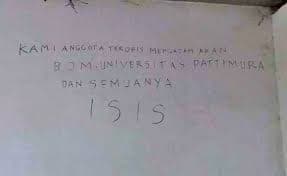 KAMI ANGGOTA TERORIS MENGANCAM AKAN
BOM. UNIVERSITAS PATTIMURA
DAN SEMUANYA
ISIS